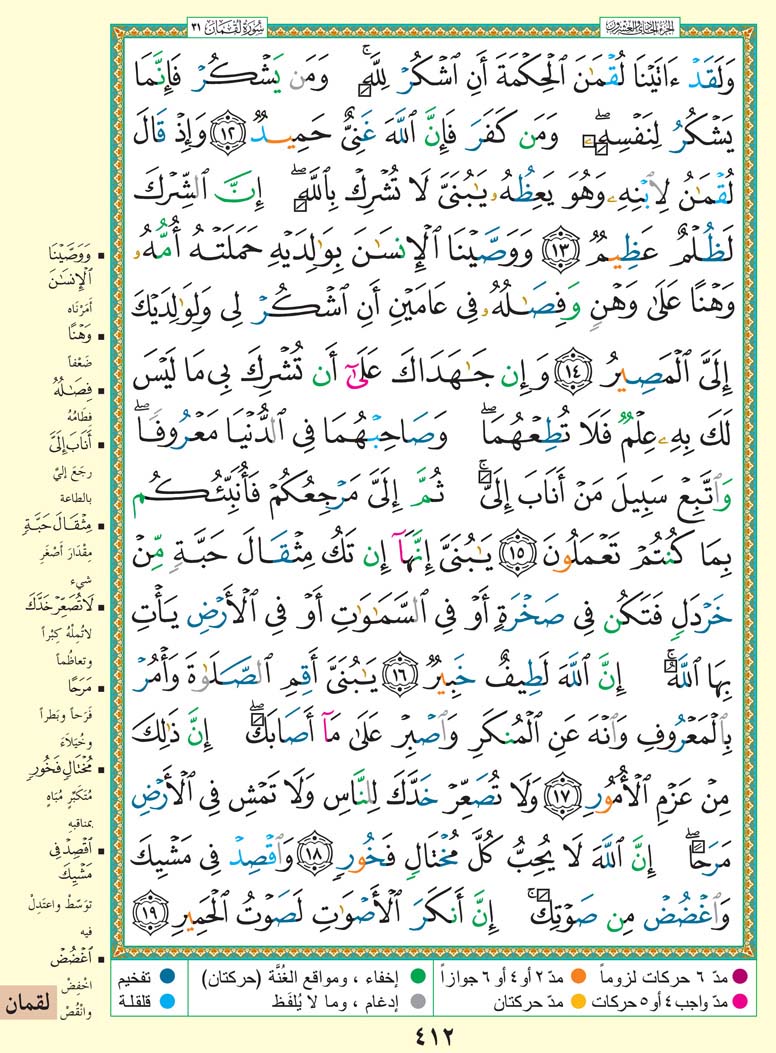 سُورَةُ لُقْمَانَ ٣١
الجزء الحادي والعشرون
وَلَقَدۡ ءَاتَيۡنَا لُقۡمَٰنَ ٱلۡحِكۡمَةَ أَنِ ٱشۡكُرۡ لِلَّهِۚ وَمَن يَشۡكُرۡ فَإِنَّمَا
يَشۡكُرُ لِنَفۡسِهِۦۖ وَمَن كَفَرَ فَإِنَّ ٱللَّهَ غَنِيٌّ حَمِيدٞ ١٢ وَإِذۡ قَالَ
لُقۡمَٰنُ لِٱبۡنِهِۦ وَهُوَ يَعِظُهُۥ يَٰبُنَيَّ لَا تُشۡرِكۡ بِٱللَّهِۖ إِنَّ ٱلشِّرۡكَ
لَظُلۡمٌ عَظِيمٞ ١٣ وَوَصَّيۡنَا ٱلۡإِنسَٰنَ بِوَٰلِدَيۡهِ حَمَلَتۡهُ أُمُّهُۥ
وَهۡنًا عَلَىٰ وَهۡنٖ وَفِصَٰلُهُۥ فِي عَامَيۡنِ أَنِ ٱشۡكُرۡ لِي وَلِوَٰلِدَيۡكَ
إِلَيَّ ٱلۡمَصِيرُ ١٤ وَإِن جَٰهَدَاكَ عَلَىٰٓ أَن تُشۡرِكَ بِي مَا لَيۡسَ
لَكَ بِهِۦ عِلۡمٞ فَلَا تُطِعۡهُمَاۖ وَصَاحِبۡهُمَا فِي ٱلدُّنۡيَا مَعۡرُوفٗاۖ
وَٱتَّبِعۡ سَبِيلَ مَنۡ أَنَابَ إِلَيَّۚ ثُمَّ إِلَيَّ مَرۡجِعُكُمۡ فَأُنَبِّئُكُم
بِمَا كُنتُمۡ تَعۡمَلُونَ ١٥ يَٰبُنَيَّ إِنَّهَآ إِن تَكُ مِثۡقَالَ حَبَّةٖ مِّنۡ
خَرۡدَلٖ فَتَكُن فِي صَخۡرَةٍ أَوۡ فِي ٱلسَّمَٰوَٰتِ أَوۡ فِي ٱلۡأَرۡضِ يَأۡتِ
بِهَا ٱللَّهُۚ إِنَّ ٱللَّهَ لَطِيفٌ خَبِيرٞ ١٦ يَٰبُنَيَّ أَقِمِ ٱلصَّلَوٰةَ وَأۡمُرۡ
بِٱلۡمَعۡرُوفِ وَٱنۡهَ عَنِ ٱلۡمُنكَرِ وَٱصۡبِرۡ عَلَىٰ مَآ أَصَابَكَۖ إِنَّ ذَٰلِكَ
مِنۡ عَزۡمِ ٱلۡأُمُورِ ١٧ وَلَا تُصَعِّرۡ خَدَّكَ لِلنَّاسِ وَلَا تَمۡشِ فِي ٱلۡأَرۡضِ
مَرَحًاۖ إِنَّ ٱللَّهَ لَا يُحِبُّ كُلَّ مُخۡتَالٖ فَخُورٖ ١٨ وَٱقۡصِدۡ فِي مَشۡيِكَ
وَٱغۡضُضۡ مِن صَوۡتِكَۚ إِنَّ أَنكَرَ ٱلۡأَصۡوَٰتِ لَصَوۡتُ ٱلۡحَمِيرِ ١٩
وَوَصَّيۡنَا
ٱلۡإِنسَٰنَ
أَمَرْنَاه
وَهۡنًا
ضَعْفاً
فِصَٰلُهُۥ
فِطَامُهُ
أَنَابَ إِلَيَّ
رجَعَ إليَّ
بالطاعة
مِثۡقَالَ حَبَّةٖ
مِقْدَارَ أَصْغَرِ
شيء
لَا تُصَعِّرۡ خَدَّكَ
لا تُمِلْهُ كِبْراً
وتعاظُماً
مَرَحًا
فَرَحاً وبَطراً
وخُيَلاءَ
مُخۡتَالٖ فَخُورٖ
مُتَكَبِّرٍ مُبَاهٍ
بمناقبِهِ
ٱقۡصِدۡ فِي
مَشۡيِكَ
توَسَّطْ واعتَدِلْ
فيه
ٱغۡضُضۡ
اخْفِضْ
وانْقُصْ
لقمان
مدّ ٦ حركات لزوماً
مدّ ٢ أو ٤ أو ٦ جوازاً
إخفاء ، ومواقع الغُنَّة (حركتان)
تفخيم
مدّ واجب ٤ أو ٥ حركات
مدّ حركتان
إدغام ، وما لا يُلفَظ
قلقلة
٤١٢